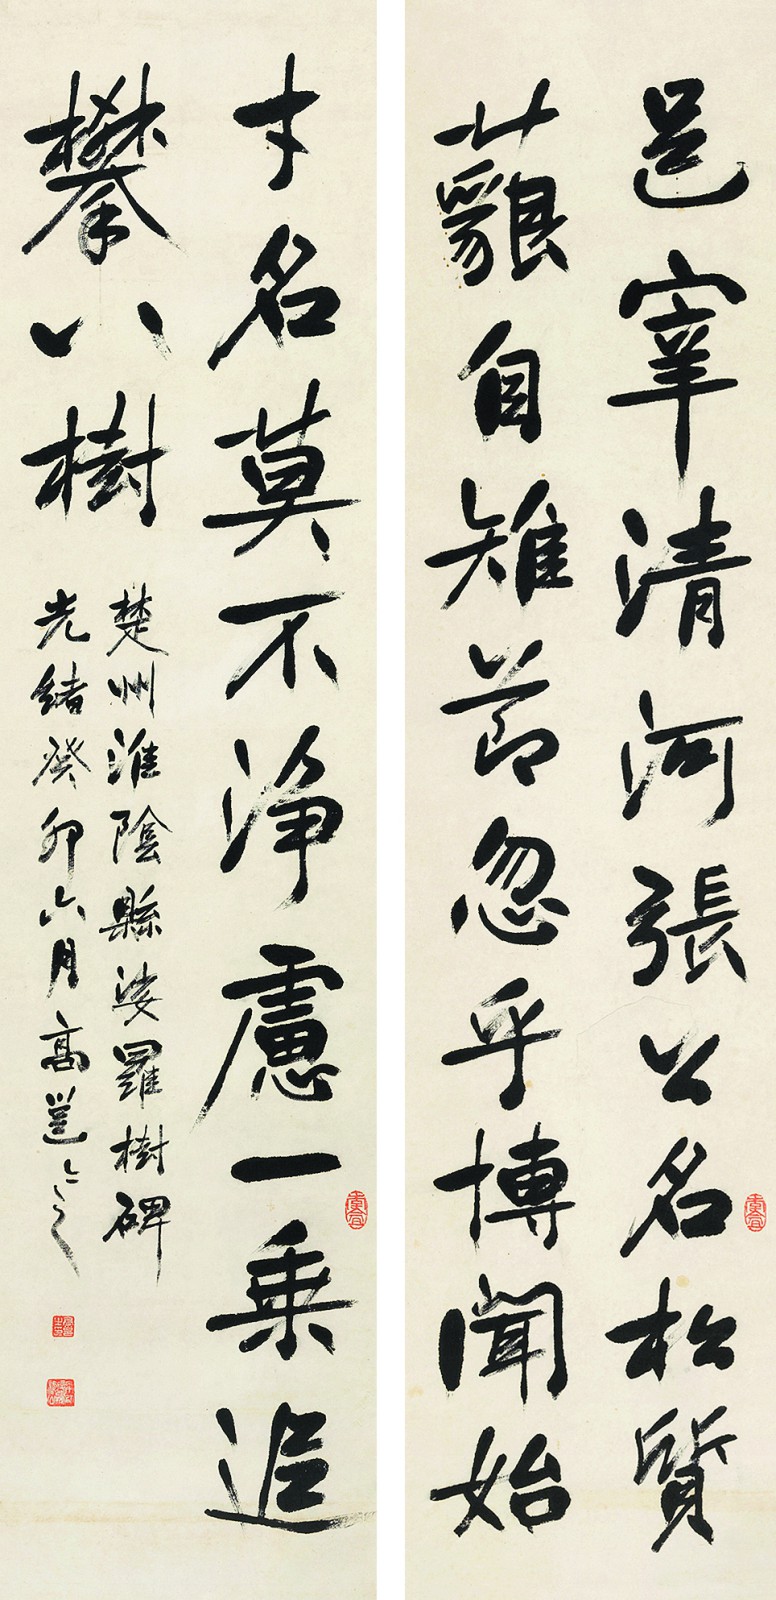 邑宰清河張公名松質
藐自雉節忽乎博聞始
才名莫不淨慮一乘追
攀八樹
楚州淮陰縣娑羅樹碑
光緒癸卯六月高邕